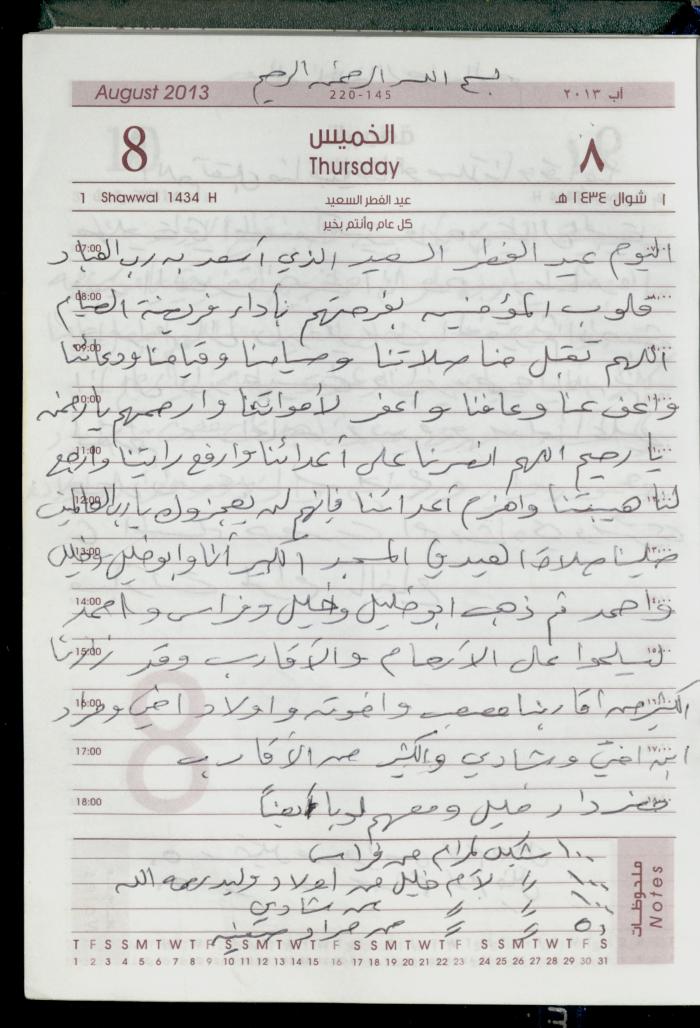 بسم الله الرحمن الرحيم
August 2013 220-145 آب ٢٠١٣
8 الخميس ٨
Thursday
1 Shawwal 1434 H عيد الفطر السعيد ١ شوال ١٤٣٤ هـ
كل عام وأنتم بخير
07:00 اليوم عيد الفطر السعيد الذي أسعد به رب العباد
08:00 قلوب المؤمنين بفرحتهم بأداء فريضة الصيام
09:00 اللهم تقبل منا صلاتنا وصيامنا وقيامنا ودعائنا
10:00 واعف عنا وعافنا واغفر لأمواتنا وارحمهم يا رحمن
11:00 يا رحيم اللهم انصرنا على أعدائنا وارفع رايتنا وارجع
12:00 لنا هيبتنا واهزم أعدائنا فإنهم لن يعجزوك يا رب العالمين
13:00 صلينا صلاة العيد في المسجد الكبير أنا وابو خليل وخليل
14:00 واحمد ثم ذهب ابو خليل وخليل وفراس واحمد
15:00 ليسلموا على الأرحام والأقارب وقد زارنا
16:00 الكثير من أقاربنا واخوته واولاد اخي ومراد
17:00 ابن اختي وشادي والكثير من الأقارب
18:00 حضر دار خليل ومعهم لوبا أيضاً
١٠٠ شيكل لمرام من فراس
١٠٠ // لأم خليل من اولاد وليد رحمه الله
١٠٠ // من شادي
٥٠ // // من مراد
ملحوظات
Notes
T F S S M T W T F S S M T W T F S S M T W T F S S M T W T F S
1 2 3 4 5 6 7 8 9 10 11 12 13 14 15 16 17 18 19 20 21 22 23 24 25 26 27 28 29 30 31